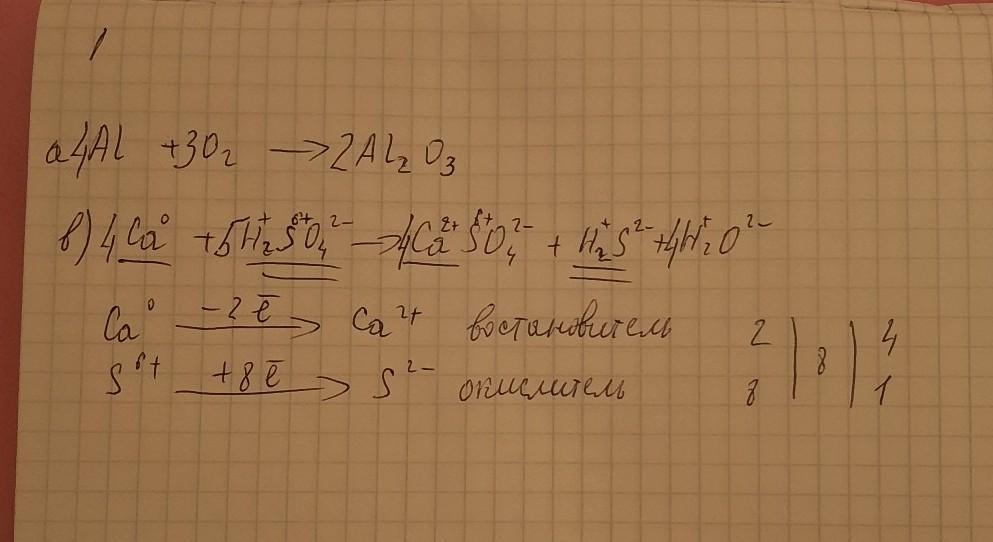 1
а 4Al + 3O₂ → 2Al₂O₃
в) 4Ca⁰ + 5H₂⁺S⁶⁺O₄²⁻ → 4Ca²⁺S⁶⁺O₄²⁻ + H₂⁺S²⁻ + 4H₂⁺O²⁻
Ca⁰ −2ē → Ca²⁺ востановитель 2 | 8 | 4
S⁶⁺ +8ē → S²⁻ окислитель 8 | | 1